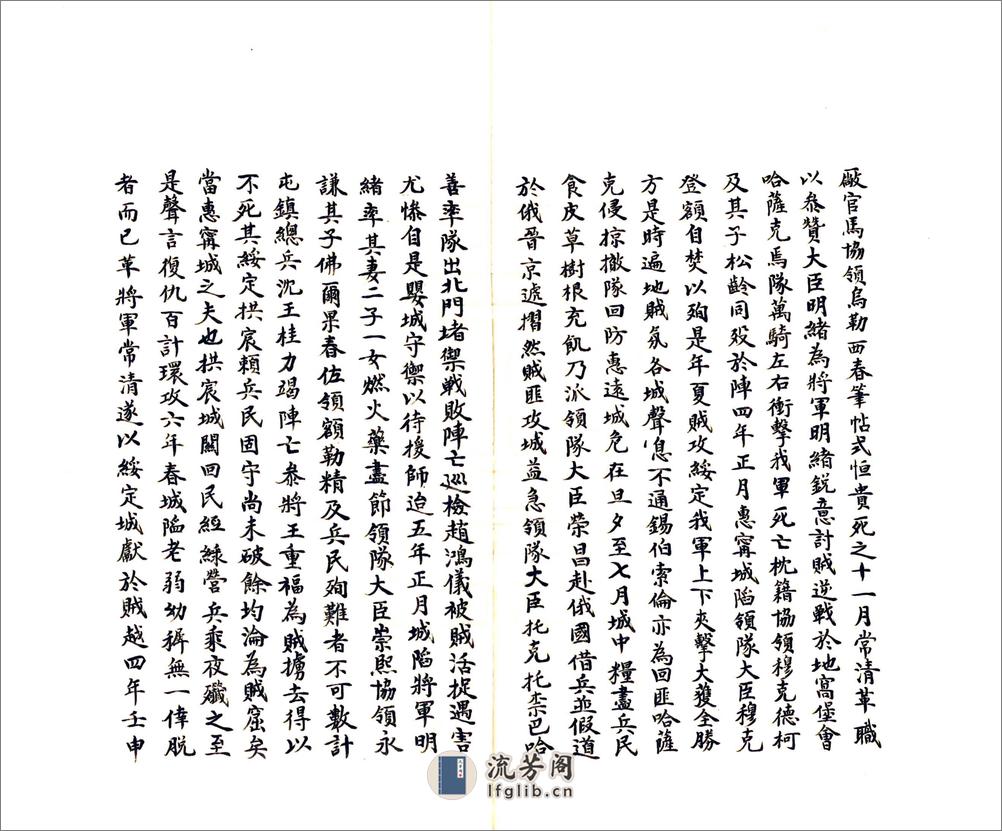 廠官馬協領烏勒西春筆帖式恒貴死之十一月常清革職
以叅贊大臣明緒為將軍明緒銳意討賊逆戰於地窩堡會
哈薩克馬隊萬騎左右衝擊我軍死亡枕籍協領穆克德柯
及其子松齡同歿於陣四年正月惠甯城陷領隊大臣穆克
登額自焚以殉是年夏賊攻綏定我軍上下夾擊大獲全勝
方是時遍地賊氛各城聲息不通錫伯索倫亦為回匪哈薩
克侵掠撤隊回防惠遠城危在旦夕至七月城中糧盡兵民
食皮草樹根充飢乃派領隊大臣榮昌赴俄國借兵並假道
於俄晉京遞摺然賊匪攻城益急領隊大臣托克托柰巴哈
善率隊出北門堵禦戰敗陣亡巡檢趙鴻儀被賊活捉遇害
尤慘自是嬰城守禦以待援師迨五年正月城陷將軍明
緒率其妻二子一女燃火藥盡節領隊大臣崇熙協領永
謙其子佛爾果春佐領額勒精及兵民殉難者不可數計
屯鎮總兵沉王桂力竭陣亡叅將王重福為賊擄去得以
不死其綏定拱宸賴兵民固守尚未破餘均淪為賊窟矣
當惠甯城之失也拱宸城關回民經綠營兵乘夜殲之至
是聲言復仇百計環攻六年春城陷老弱幼穉無一倖脫
者而已革將軍常清遂以綏定城獻於賊越四年壬申
流芳阁
lfglib.cn